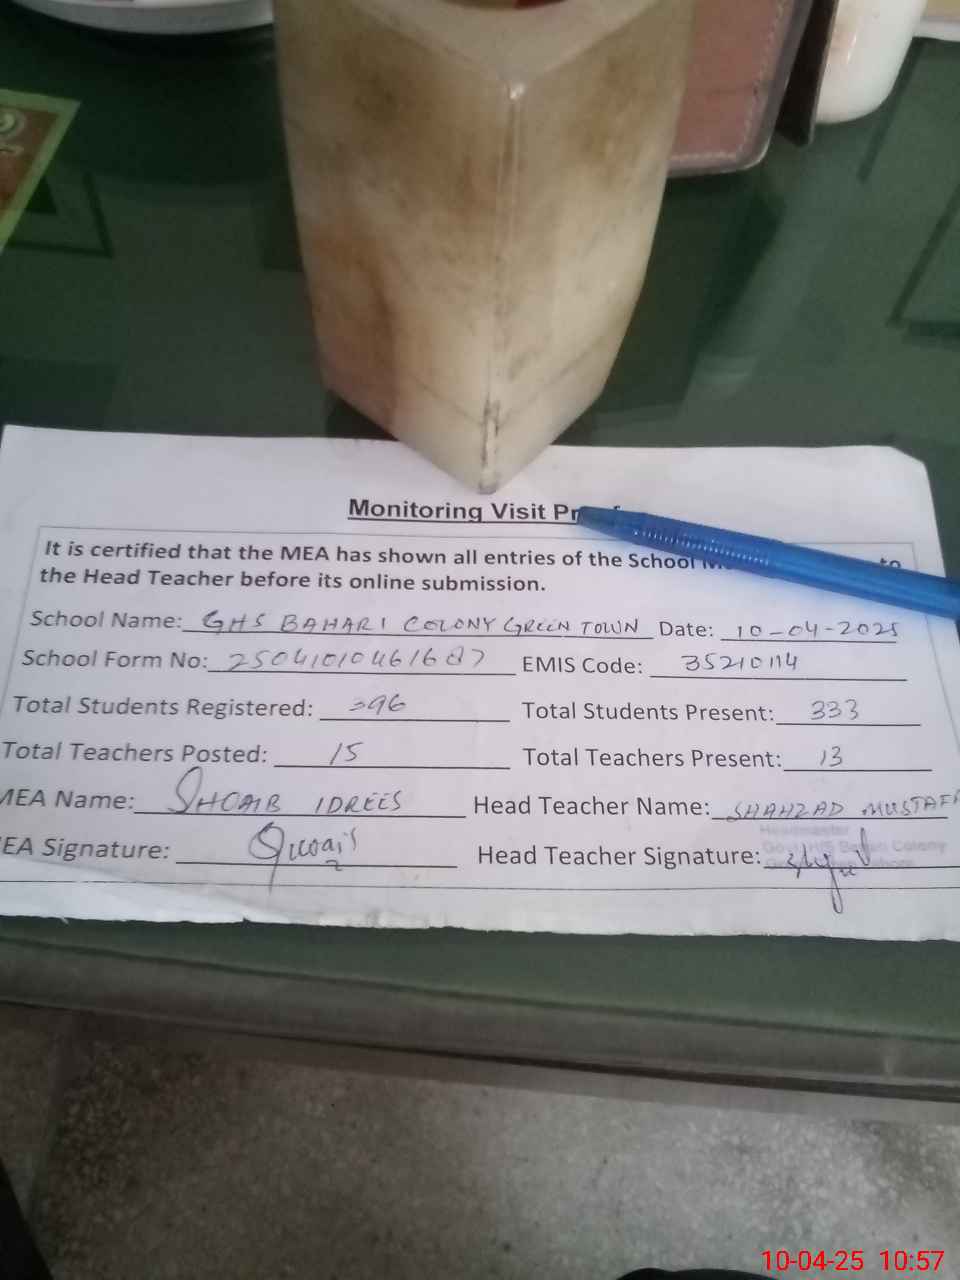 Monitoring Visit
It is certified that the MEA has shown all entries of the School to
the Head Teacher before its online submission.
School Name: GHS BAHARI COLONY GREEN TOWN Date: 10-04-2025
School Form No: EMIS Code: 35210114
Total Students Registered: 396 Total Students Present: 333
Total Teachers Posted: 15 Total Teachers Present: 13
MEA Name: SHOAIB IDREES Head Teacher Name: SHAHZAD MUSTAFA
EA Signature: Head Teacher Signature:
Headmaster
Colony
10-04-25 10:57